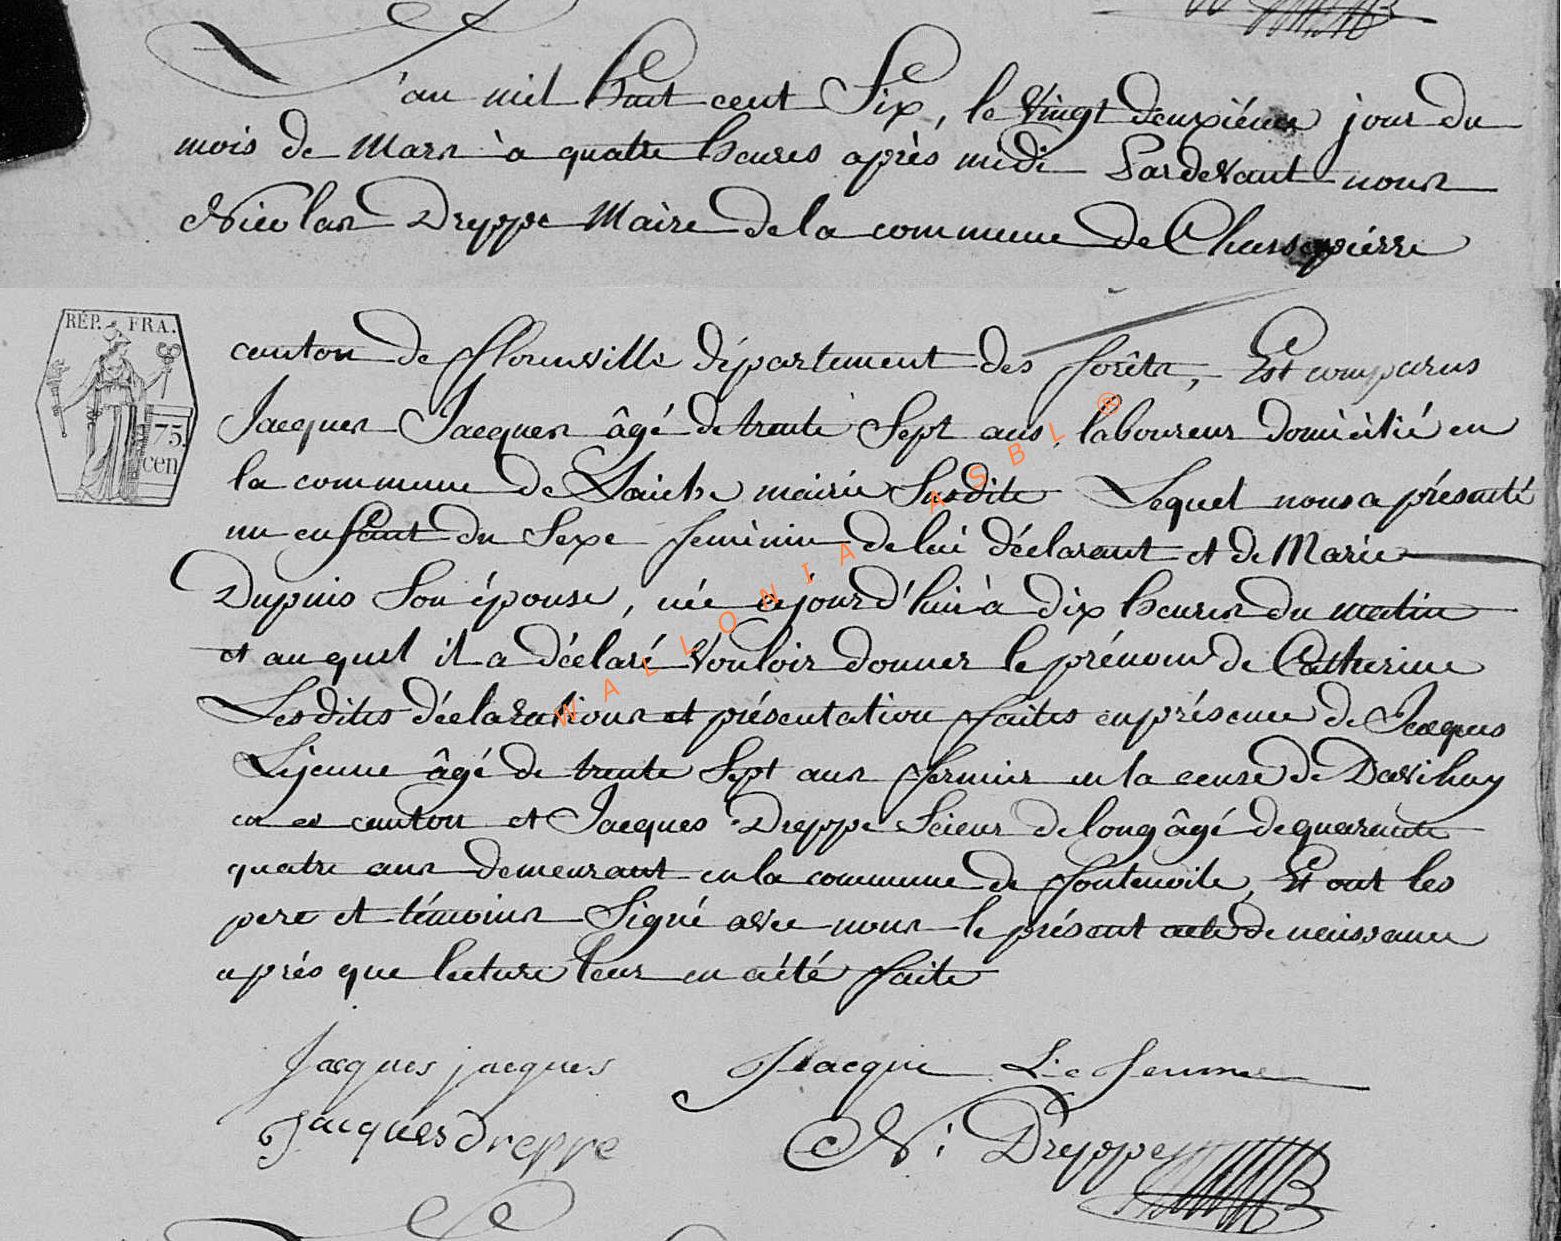 L'an mil huit cent Six, le Vingt deuxiéme jour du
mois de Mars à quatre heures après midi Pardevant nous
Nicolas Dreppe Maire de la commune de Chassepierre
RÉP. FRA.
75.
cen
canton de florenville département des forêts, Est comparus
Jacques Jacques âgé de trente Sept ans, laboureur domicilié en
la commune de Laiche mairie Susdite Lequel nous a présenté
un enfant du Sexe feminin de lui déclarant et de Marie
Dupuis Son épouse, née cejourd'hui à dix heures du matin
et auquel il a déclaré Vouloir donner le prénom de Catherine
Lesdites déclarations et présentation faites en présence de Jacques
Lejeune âgé de trente Sept ans fermier en la cense de Davihay
en ce canton et Jacques Dreppe Scieur de long âgé de quarante
quatre ans demeurant en la commune de fontenoile, Et ont les
pere et témoins Signé avec nous le présent acte de naissance
après que lecture leur en a été faite
Jacques jacques Jacque Le Jeune
Jacques dreppe N: Dreppe
WALLONIA ASBL ®